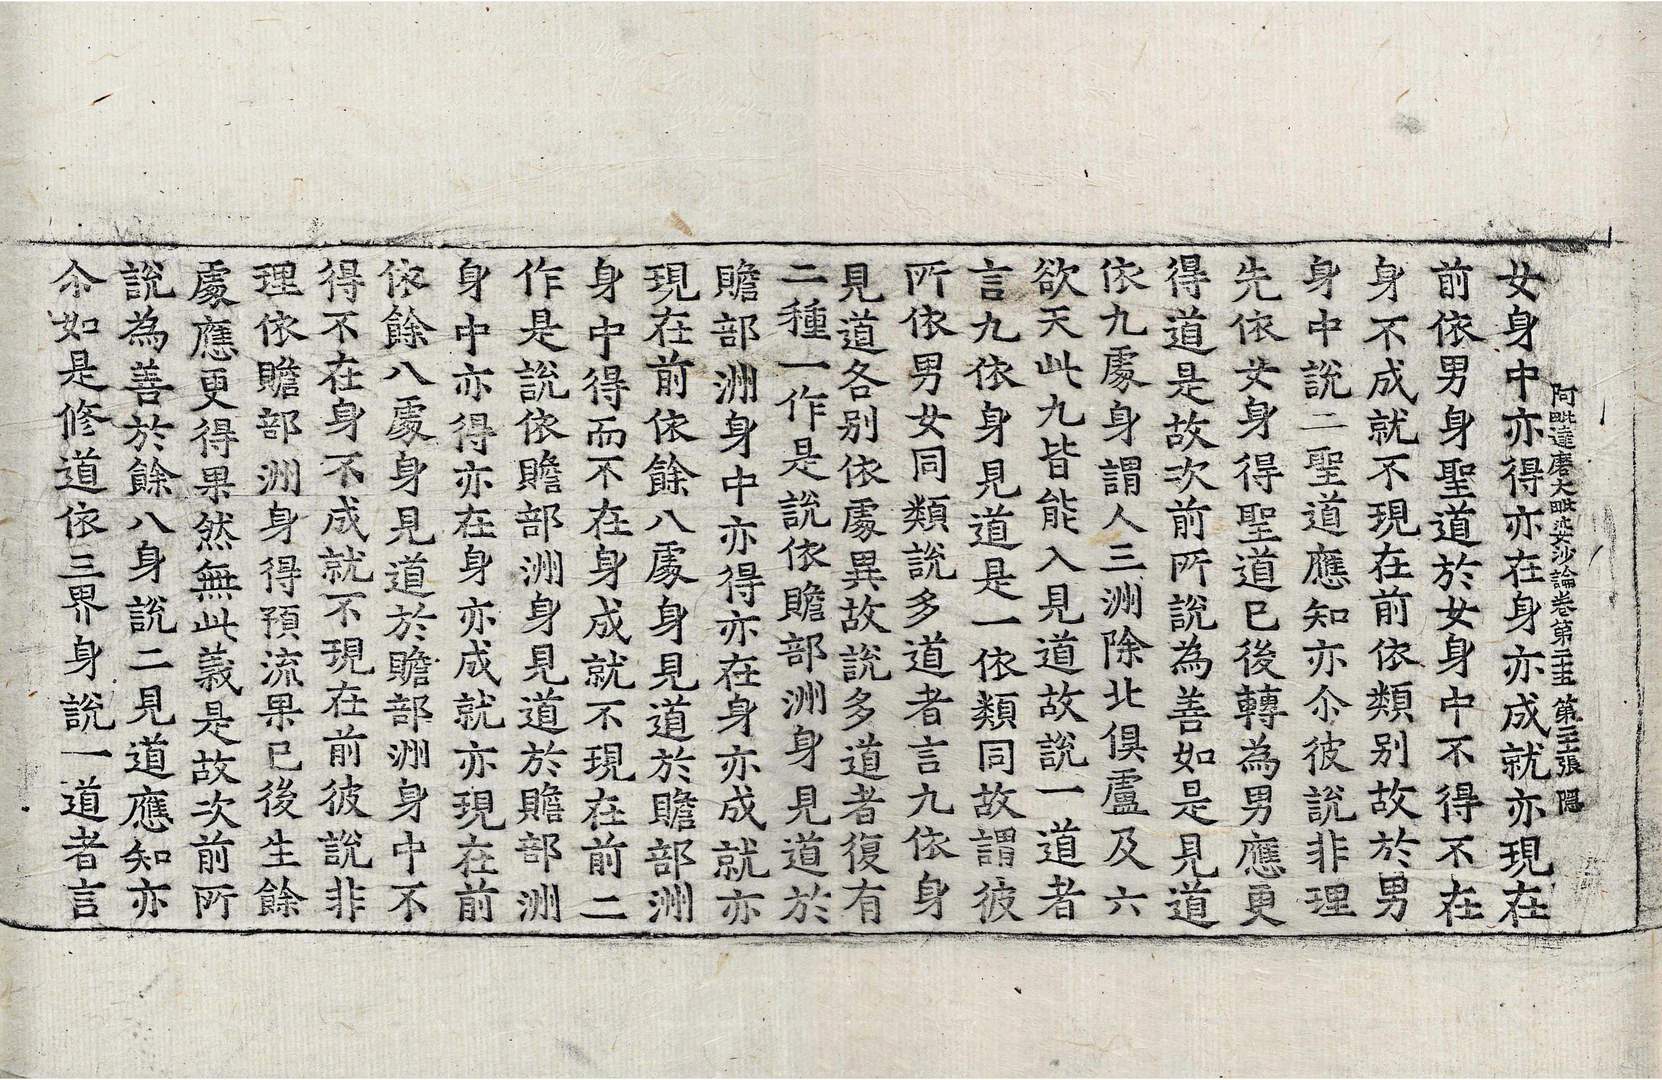 阿毗達磨大毗婆沙論卷第二十五 第二十張 隱
女身中亦得亦在身亦成就亦現在
前依男身聖道於女身中不得不在
身不成就不現在前依類別故於男
身中說二聖道應知亦尒彼說非理
先依女身得聖道已後轉為男應更
得道是故次前所說為善如是見道
依九處身謂人三洲除北俱盧及六
欲天此九皆能入見道故說一道者
言九依身見道是一依類同故謂彼
所依男女同類說多道者言九依身
見道各別依處異故說多道者復有
二種一作是說依贍部洲身見道於
贍部洲身中亦得亦在身亦成就亦
現在前依餘八處身見道於贍部洲
身中得而不在身成就不現在前二
作是說依贍部洲身見道於贍部洲
身中亦得亦在身亦成就亦現在前
依餘八處身見道於贍部洲身中不
得不在身不成就不現在前彼說非
理依贍部洲身得預流果已後生餘
處應更得果然無此義是故次前所
說為善於餘八身說二見道應知亦
尒如是修道依三界身說一道者言